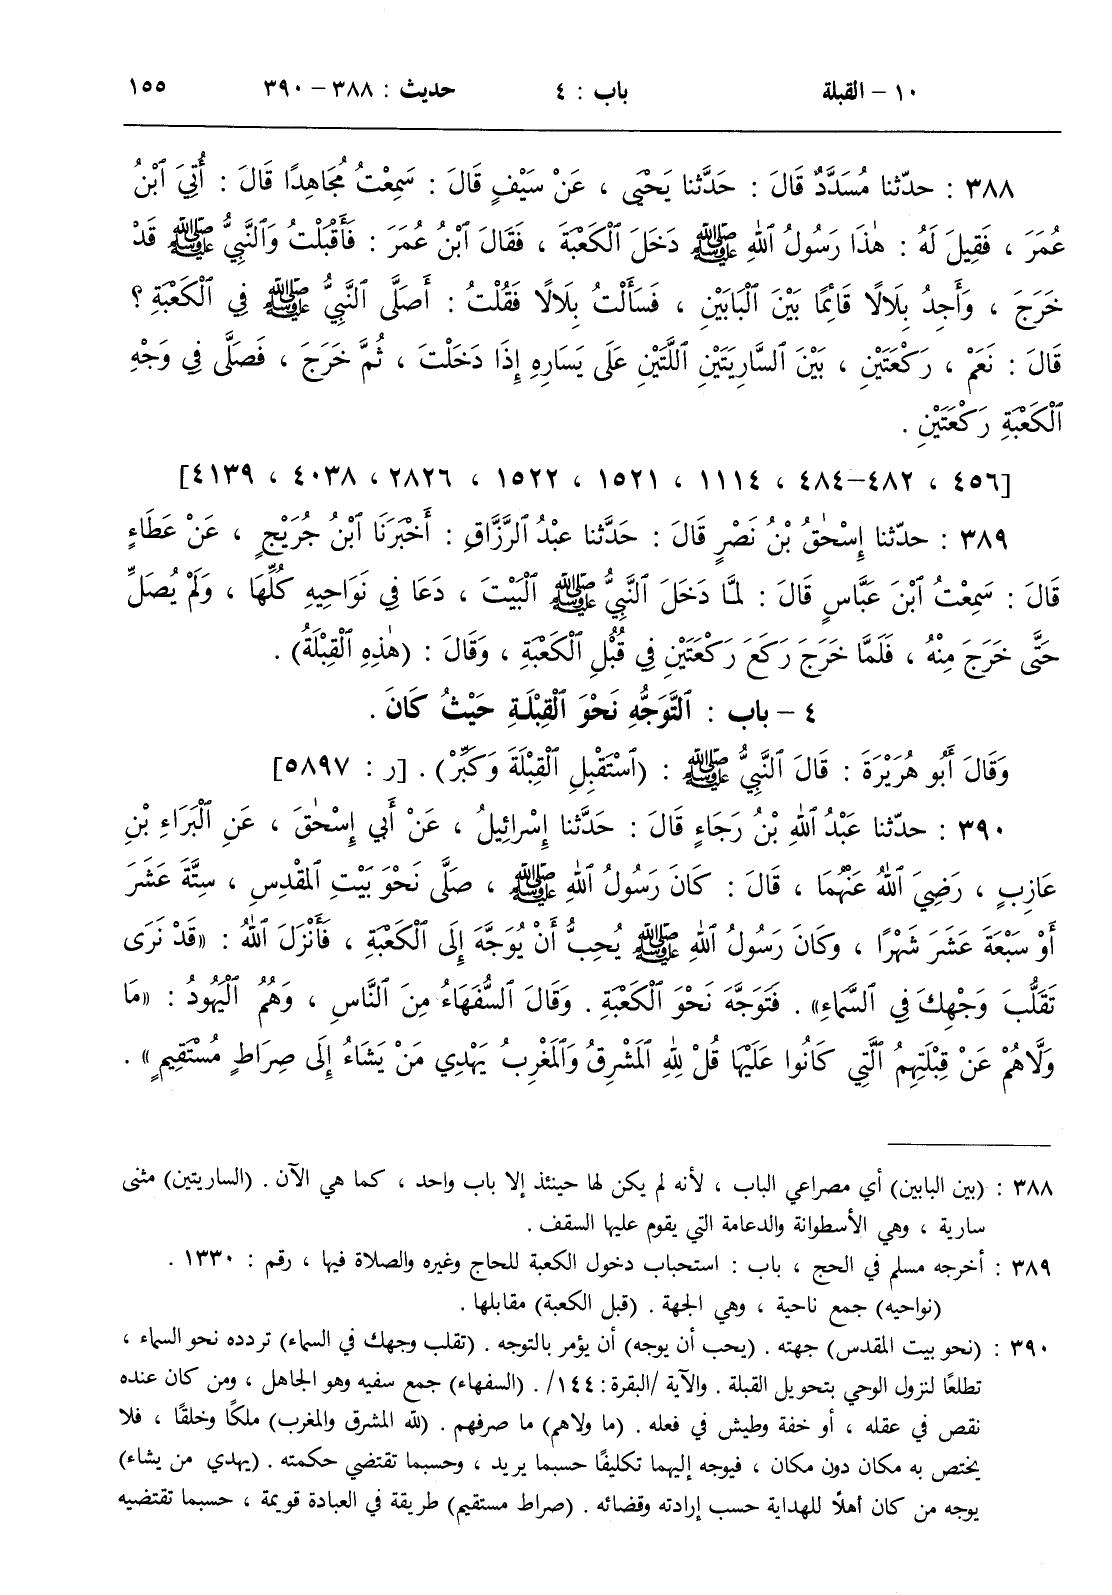 ١٠ – القبلة باب : ٤ حديث : ٣٨٨ – ٣٩٠ ١٥٥
٣٨٨ : حدّثنا مُسَدَّدٌ قَالَ : حَدَّثنا يَحْيَى ، عَنْ سَيْفٍ قَالَ : سَمِعْتُ مُجَاهِدًا قَالَ : أُتِيَ ٱبْنُ
عُمَرَ ، فَقِيلَ لَهُ : هٰذَا رَسُولُ ٱللهِ ﷺ دَخَلَ ٱلْكَعْبَةَ ، فَقَالَ ٱبْنُ عُمَرَ : فَأَقْبَلْتُ وَٱلنَّبِيُّ ﷺ قَدْ
خَرَجَ ، وَأَجِدُ بِلَالًا قَائِمًا بَيْنَ ٱلْبَابَيْنِ ، فَسَأَلْتُ بِلَالًا فَقُلْتُ : أَصَلَّى ٱلنَّبِيُّ ﷺ فِي ٱلْكَعْبَةِ ؟
قَالَ : نَعَمْ ، رَكْعَتَيْنِ ، بَيْنَ ٱلسَّارِيَتَيْنِ ٱللَّتَيْنِ عَلَى يَسَارِهِ إِذَا دَخَلْتَ ، ثُمَّ خَرَجَ ، فَصَلَّى فِي وَجْهِ
ٱلْكَعْبَةِ رَكْعَتَيْنِ .
[٤٥٦ ، ٤٨٢–٤٨٤ ، ١١١٤ ، ١٥٢١ ، ١٥٢٢ ، ٢٨٢٦ ، ٤٠٣٨ ، ٤١٣٩]
٣٨٩ : حدّثنا إِسْحٰقُ بْنُ نَصْرٍ قَالَ : حَدَّثنا عبْدُ الرَّزَّاقِ : أَخْبَرَنَا ٱبْنُ جُرَيْجٍ ، عَنْ عَطَاءٍ
قَالَ : سَمِعْتُ ٱبْنَ عَبَّاسٍ قَالَ : لمَّا دَخَلَ ٱلنَّبِيُّ ﷺ ٱلْبَيْتَ ، دَعَا فِي نَوَاحِيهِ كُلِّهَا ، وَلَمْ يُصَلِّ
حَتَّى خَرَجَ مِنْهُ ، فَلَمَّا خَرَجَ رَكَعَ رَكْعَتَيْنِ فِي قُبُلِ ٱلْكَعْبَةِ ، وَقَالَ : (هٰذِهِ ٱلْقِبْلَةُ) .
٤ – باب : ٱلتَّوَجُّهِ نَحْوَ ٱلْقِبْلَةِ حَيْثُ كَانَ .
وَقَالَ أَبُو هُرَيْرَةَ : قَالَ ٱلنَّبِيُّ ﷺ : (ٱسْتَقْبِلِ ٱلْقِبْلَةَ وَكَبِّرْ) . [ر : ٥٨٩٧]
٣٩٠ : حدّثنا عَبْدُ ٱللهِ بْنُ رَجَاءٍ قَالَ : حَدَّثنا إِسْرائِيلُ ، عَنْ أَبِي إِسْحٰقَ ، عَنِ ٱلْبَرَاءِ بْنِ
عَازِبٍ ، رَضِيَ ٱللهُ عَنْهُمَا ، قَالَ : كَانَ رَسُولُ ٱللهِ ﷺ ، صَلَّى نَحْوَ بَيْتِ ٱلمَقْدِسِ ، سِتَّةَ عَشَرَ
أَوْ سَبْعَةَ عَشَرَ شَهْرًا ، وكَانَ رَسُولُ ٱللهِ ﷺ يُحِبُّ أَنْ يُوَجَّهَ إِلَى ٱلْكَعْبَةِ ، فَأَنْزَلَ ٱللهُ : «قَدْ نَرَى
تَقَلُّبَ وَجْهِكَ فِي ٱلسَّمَاءِ» . فَتَوَجَّهَ نَحْوَ ٱلْكَعْبَةِ . وَقَالَ ٱلسُّفَهَاءُ مِنَ ٱلنَّاسِ ، وَهُمُ ٱلْيَهُودُ : «مَا
وَلَّاهُمْ عَنْ قِبْلَتِهِمُ ٱلَّتِي كَانُوا عَلَيْهَا قُلْ لِلهِ ٱلمَشْرِقُ وَٱلمَغْرِبُ يَهْدِي مَنْ يَشَاءُ إِلَى صِرَاطٍ مُسْتَقِيمٍ» .
٣٨٨ : (بين البابين) أي مصراعي الباب ، لأنه لم يكن لها حينئذ إلا باب واحد ، كما هي الآن . (الساريتين) مثنى
سارية ، وهي الأسطوانة والدعامة التي يقوم عليها السقف .
٣٨٩ : أخرجه مسلم في الحج ، باب : استحباب دخول الكعبة للحاج وغيره والصلاة فيها ، رقم : ١٣٣٠ .
(نواحيه) جمع ناحية ، وهي الجهة . (قبل الكعبة) مقابلها .
٣٩٠ : (نحو بيت المقدس) جهته . (يحب أن يوجه) أن يؤمر بالتوجه . (تقلب وجهك في السماء) تردده نحو السماء ،
تطلعًا لنزول الوحي بتحويل القبلة . والآية /البقرة : ١٤٤/ . (السفهاء) جمع سفيه وهو الجاهل ، ومن كان عنده
نقص في عقله ، أو خفة وطيش في فعله . (ما ولاهم) ما صرفهم . (لله المشرق والمغرب) ملكًا وخلقًا ، فلا
يختص به مكان دون مكان ، فيوجه إليهما تكليفًا حسبما يريد ، وحسبما تقتضي حكمته . (يهدي من يشاء)
يوجه من كان أهلًا للهداية حسب إرادته وقضائه . (صراط مستقيم) طريقة في العبادة قويمة ، حسبما تقتضيه